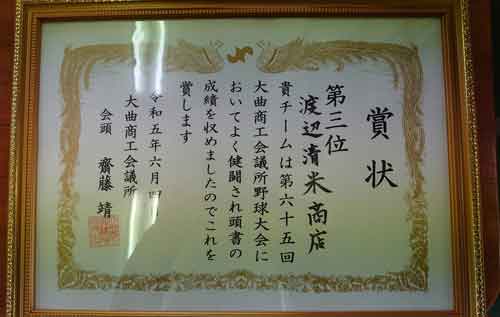 賞状
第三位
渡辺清米商店
貴チームは第六十五回
大曲商工会議所野球大会に
おいてよく健闘され頭書の
成績を収めましたのでこれを
賞します
令和五年六月四日
大曲商工会議所
会頭 齋藤靖